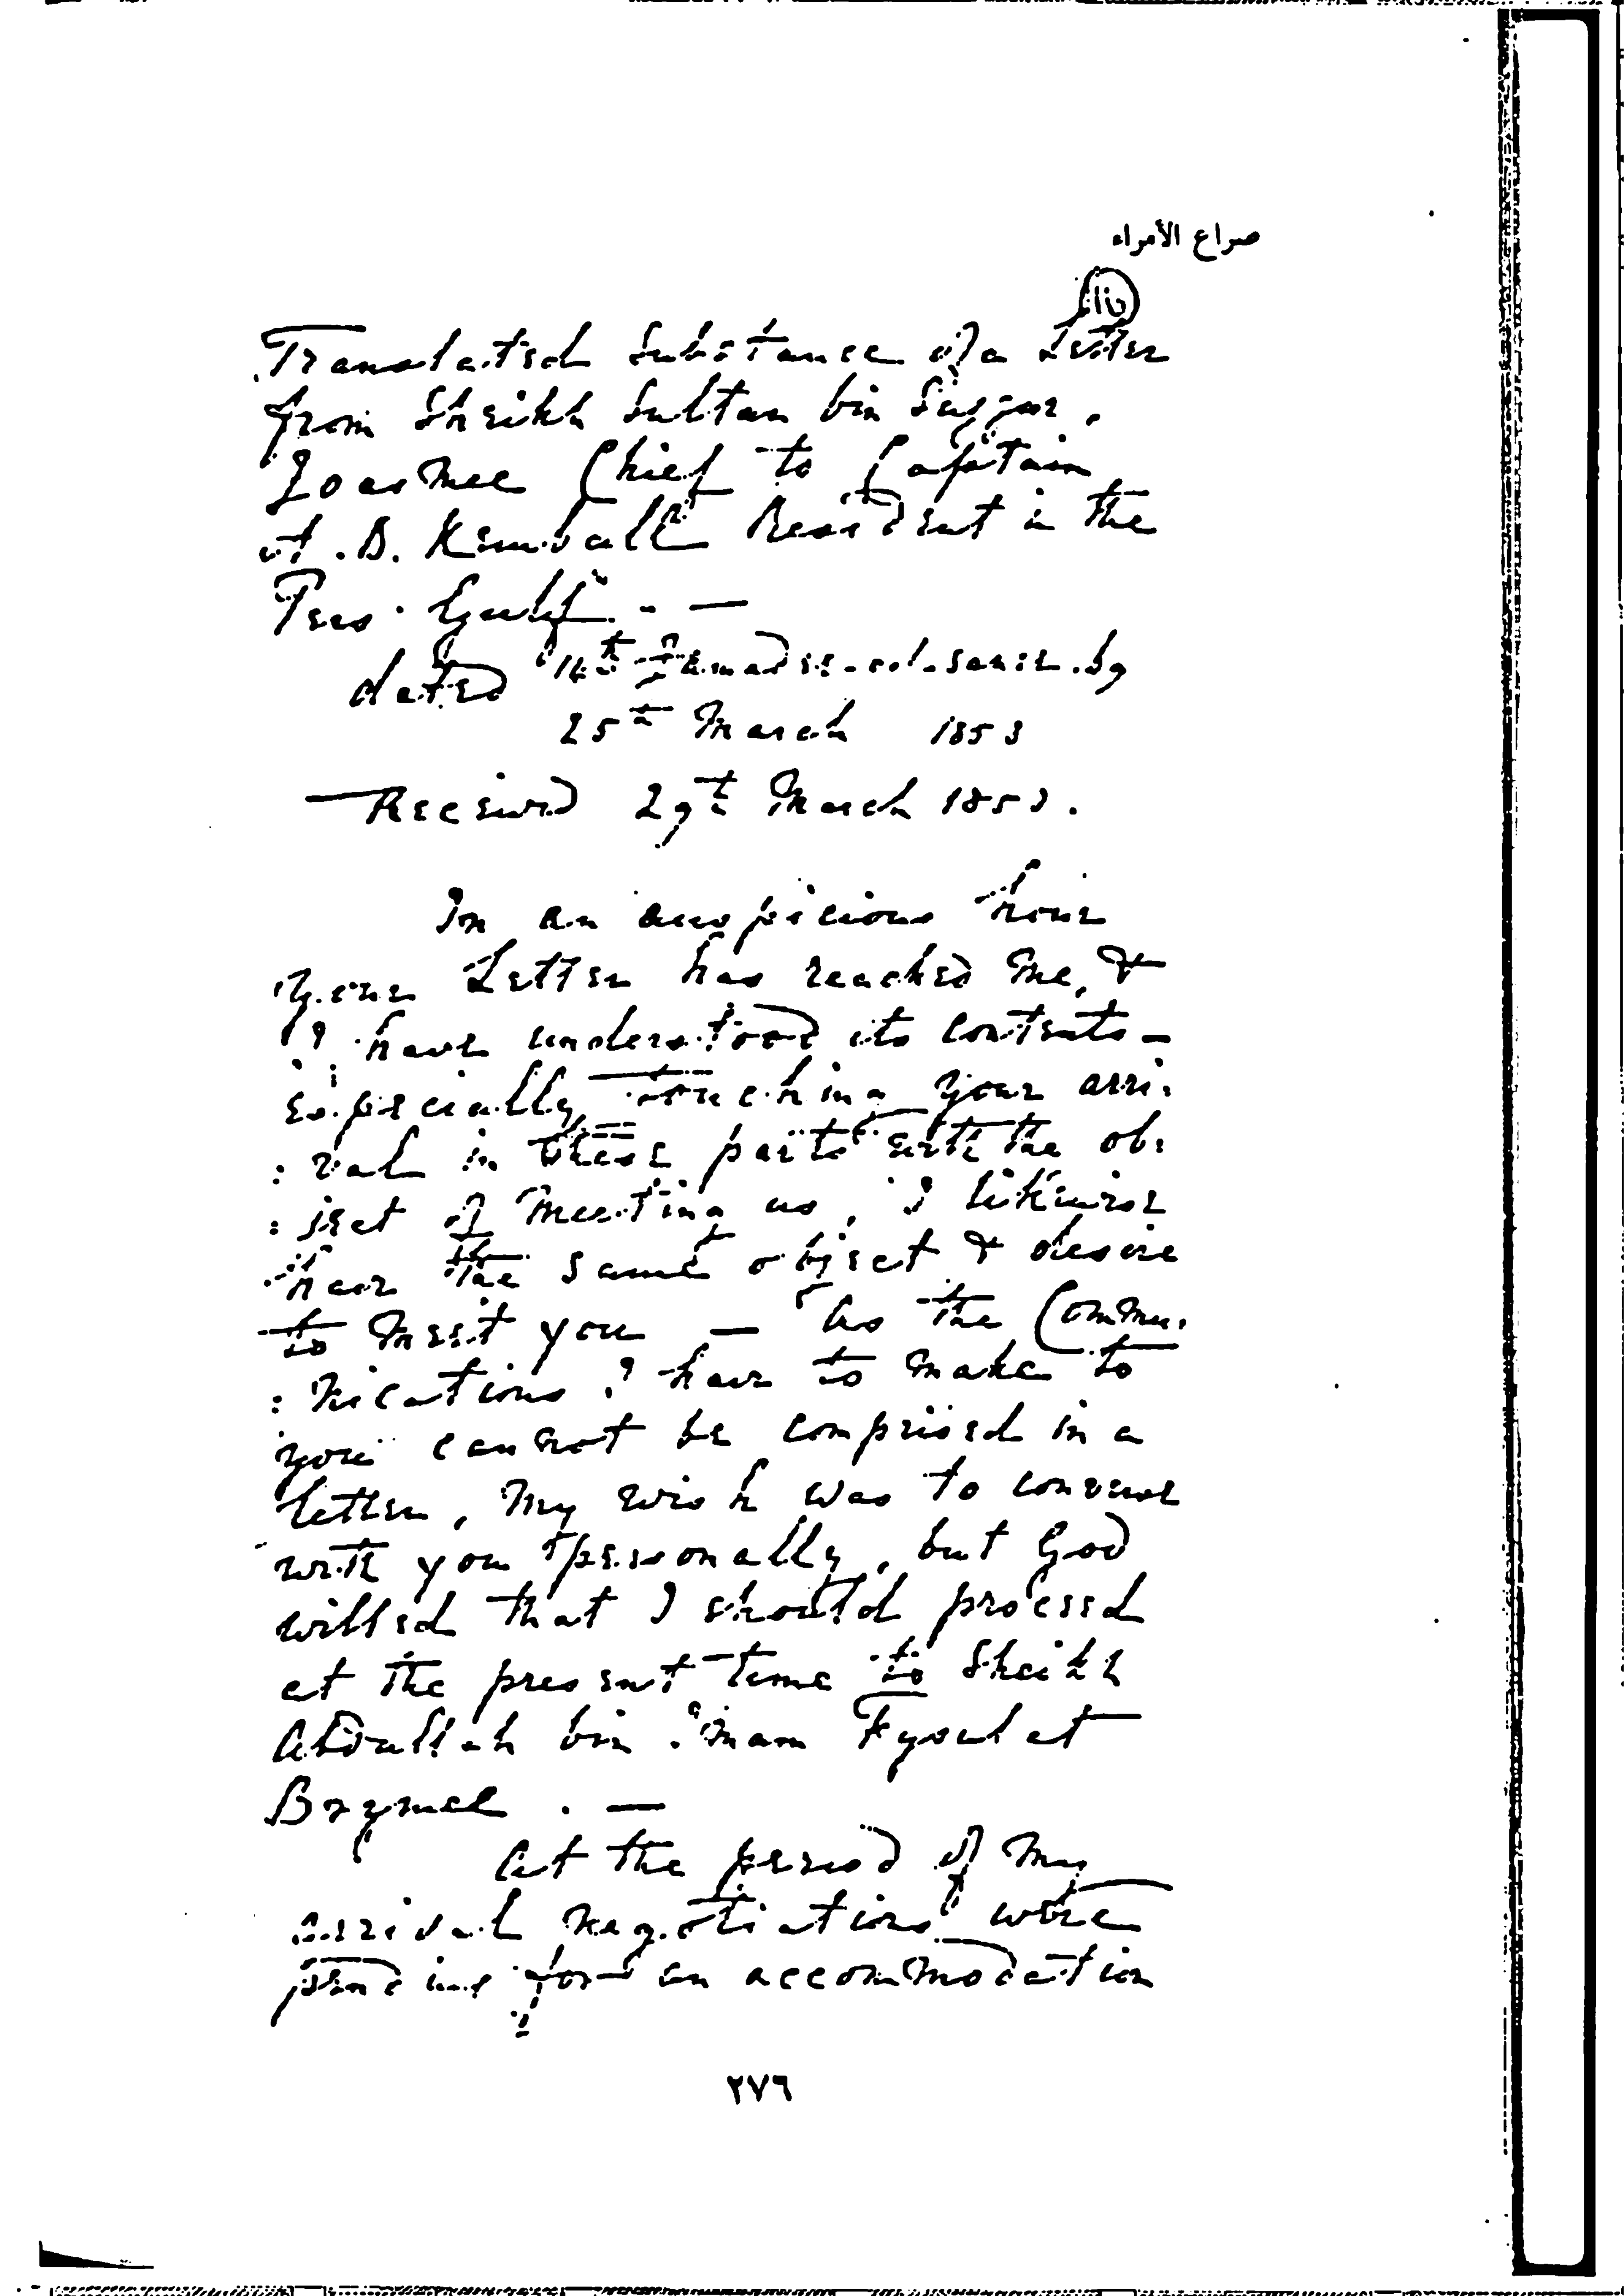 صراع الأمراء
Translated Substance of a Letter
from Sheikh Sultan bin Suggur,
Joasmee Chief to Captain
A. B. Kemball Resident in the
Pers. Gulf. —
dated 14th
25th March 1853
Received 29th March 1853.
In an auspicious hour
your Letter has reached me, &
I have understood its contents –
especially touching your arri:
: val in these parts with the ob:
: ject of meeting us, I likewise
have the same object & desire
to meet you — As the Commu:
: nications I have to make to
you cannot be comprised in a
letter, my wish was to converse
with you personally, but God
willed that I should proceed
at the present time to Sheikh
Abdullah bin Imam Fysul at
Brymee . —
At the period of my
arrival negotiations were
pending for an accommodation
٢٧٦